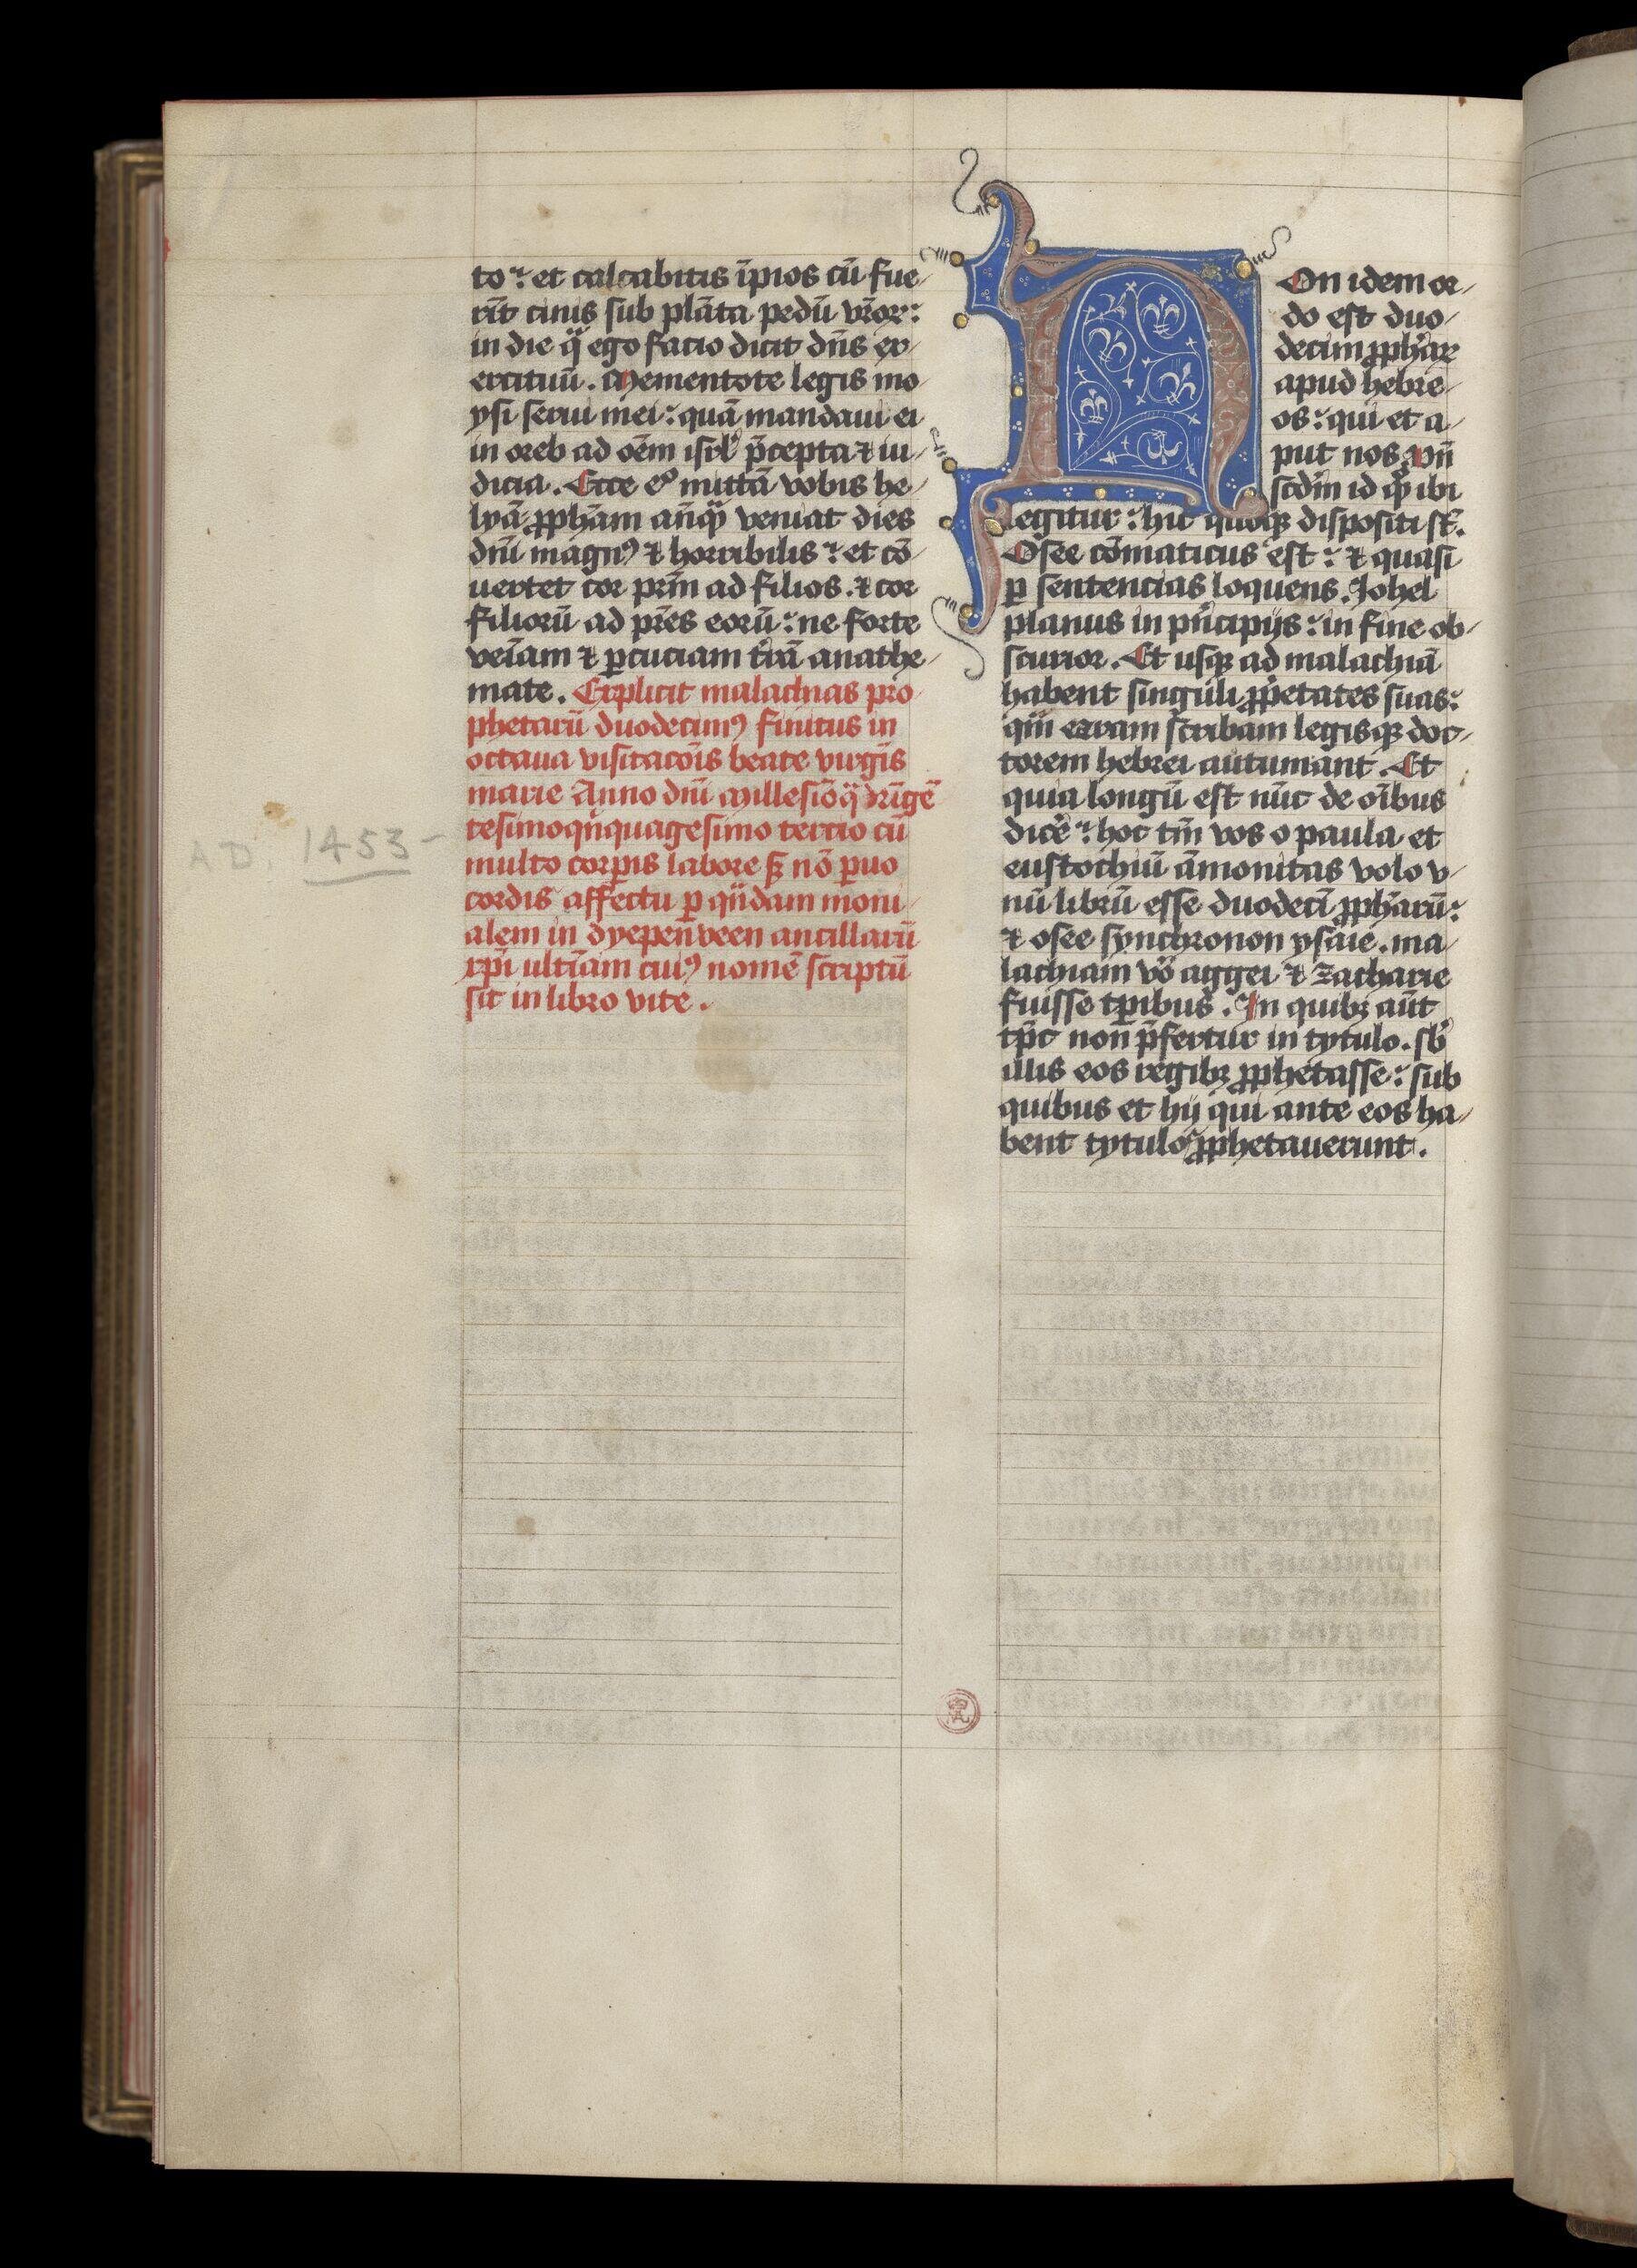 to. et calcabitis īpios cū fue
rīt cinis sub plāta pedū vr̄or:
in die q̄ ego facio dicit dn̄s ex
ercituū. Mementote legis mo
ysi serui mei: quā mandaui ei
in oreb ad oēm isrl̄ p̄cepta ⁊ iu
dicia. Ecce eº mittā vobis he
lyā ꝓph̄am an̄q̄ veniat dies
dn̄i magnꝰ ⁊ horribilis: et cō
uertet cor pr̄m ad filios. ⁊ cor
filiorū ad pr̄es eorū: ne forte
veīam ⁊ ꝑcuciam t̄rā anathe
mate. Explicit malachias pro
phetarū duodecimꝰ finitus in
octaua visitacōis beate virgīs
marie Anno dn̄i Millesiōq̄drīgē
tesimoqn̄quagesimo tercio cū
multo corꝑis labore sꝫ nō ꝑuo
cordis affectu ꝑ qn̄dam moni
alem in dyepen̄veen ancillarū
xp̄i ultīam cuiꝰ nomē scriptū
sit in libro vite.
AD. 1453
Non idem or
do est duo
decim ꝓph̄aꝝ
apud hebre
os: qui et a
put nos Vn̄
scdm̄ id qᵈ ibi
legitur: hic quoqꝫ dispositi st̄.
Osee cōmaticus est: ⁊ quasi
ꝑ sentencias loquens. Johel
planus in pn̄cipijs: in fine ob
scurior. Et usqꝫ ad malachiā
habent singuli ꝓp̄etates suas:
quē ezram scribam legisqꝫ doc
torem hebrei autumant. Et
quia longū est nūc de oībus
dicē: hoc tm̄ vos o paula et
eustochiū āmonitas volo v
nū librū esse duodecī ꝓph̄arū:
⁊ osee synchronon ysaie. ma
lachiam vº aggei ⁊ zacharie
fuisse tꝑibus. In quibꝫ aūt
tp̄c non p̄fertur in tytulo. sb̄
illis eos regibꝫ ꝓphetasse: sub
quibus et hij qui ante eos ha
bent tytulos ꝓphetauerunt.